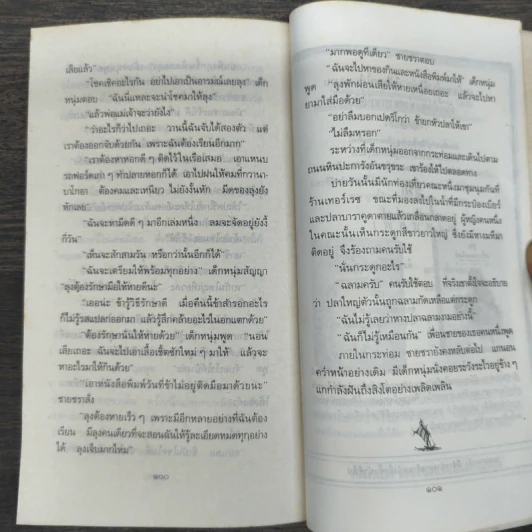 เสียแล้ว”
“โชคเชิคอะไรกัน อย่าไปเอาเป็นอารมณ์เลยลุง” เด็ก
หนุ่มตอบ “ฉันนี่แหละจะนำโชคมาให้ลุง”
“แล้วพ่อแม่เจ้าจะว่ายังไง”
“ว่าอะไรก็ว่าไปเถอะ วานนี้ฉันจับได้สองตัว แต่
เราต้องออกจับด้วยกัน เพราะฉันต้องเรียนอีกมาก”
“เราต้องหาหอกดี ๆ ติดไว้ในเรือเสมอ เอาแหนบ
รถฟอร์ดเก่า ๆ ทำหอกก็ได้ เอาไปฝนให้คมที่กวานา-
บาโกอา ต้องคมและเหนียว ไม่ยังงั้นหัก มีดของลุงยัง
หักเลย”
“ฉันจะหามีดดี ๆ มาอีกเล่มหนึ่ง ลมจะจัดอยู่ยังงี้
กี่วัน”
“เห็นจะสักสามวัน หรือกว่านั้นอีกก็ได้”
“ฉันจะเตรียมให้พร้อมทุกอย่าง” เด็กหนุ่มสัญญา
“ลุงต้องรักษามือให้หายดีนะ”
“เออน่ะ ข้ารู้วิธีรักษาดี เมื่อคืนนี้ข้าสำรอกอะไร
ก็ไม่รู้สแปลกออกมา แล้วรู้สึกคล้ายอะไรในอกแตกด้วย”
“ต้องรักษานั่นให้หายด้วย” เด็กหนุ่มพูด “นอน
เสียเถอะ ฉันจะไปเอาเสื้อเชิ้ตซักใหม่ ๆ มาให้ แล้วจะ
หาอะไรมาให้กินด้วย”
“เอาหนังสือพิมพ์วันที่ข้าไม่อยู่ติดมือมาด้วยนะ”
ชายชราสั่ง
“ลุงต้องหายเร็ว ๆ เพราะมีอีกหลายอย่างที่ฉันต้อง
เรียน มีลุงคนเดียวที่จะสอนฉันให้รู้ละเอียดหมดทุกอย่าง
ได้ ลุงเจ็บมากไหม”
๑๐๐
“มากพอดูทีเดียว” ชายชราตอบ
“ฉันจะไปหาของกินและหนังสือพิมพ์มาให้” เด็กหนุ่ม
พูด “ลุงพักผ่อนเสียให้หายเหนื่อยเถอะ แล้วจะไปหา
ยามาใส่มือด้วย”
“อย่าลืมบอกเปดริโกว่า ข้ายกหัวปลาให้เขา”
“ไม่ลืมหรอก”
ระหว่างที่เด็กหนุ่มออกจากกระท่อมและเดินไปตาม
ถนนหินปะการังอันขรุขระ เขาร้องไห้ไปตลอดทาง
บ่ายวันนั้นมีนักท่องเที่ยวคณะหนึ่งมาชุมนุมกันที่
ร้านเทอร์เรซ ขณะที่มองลงไปในน้ำที่มีกระป๋องเบียร์
และปลาบาราคูดาตายแล้วเกลื่อนกลาดอยู่ ผู้หญิงคนหนึ่ง
ในคณะนั้นเห็นกระดูกสีขาวยาวใหญ่ ซึ่งยังมีหางมหึมา
ติดอยู่ จึงร้องถามคนรับใช้
“นั่นกระดูกอะไร”
“ฉลามครับ” คนรับใช้ตอบ ที่จริงเขาตั้งใจจะอธิบาย
ว่า ปลาใหญ่ตัวนั้นถูกฉลามกัดเหลือแต่กระดูก
“ฉันไม่รู้เลยว่าหางปลาฉลามงามอย่างนี้”
“ฉันก็ไม่รู้เหมือนกัน” เพื่อนชายของเธอคนหนึ่งพูด
ภายในกระท่อม ชายชรายังคงหลับต่อไป แกนอน
คว่ำหน้าอย่างเดิม มีเด็กหนุ่มนั่งคอยระวังระไวอยู่ข้าง ๆ
แกกำลังฝันถึงสิงโตอย่างเพลิดเพลิน
๑๐๑